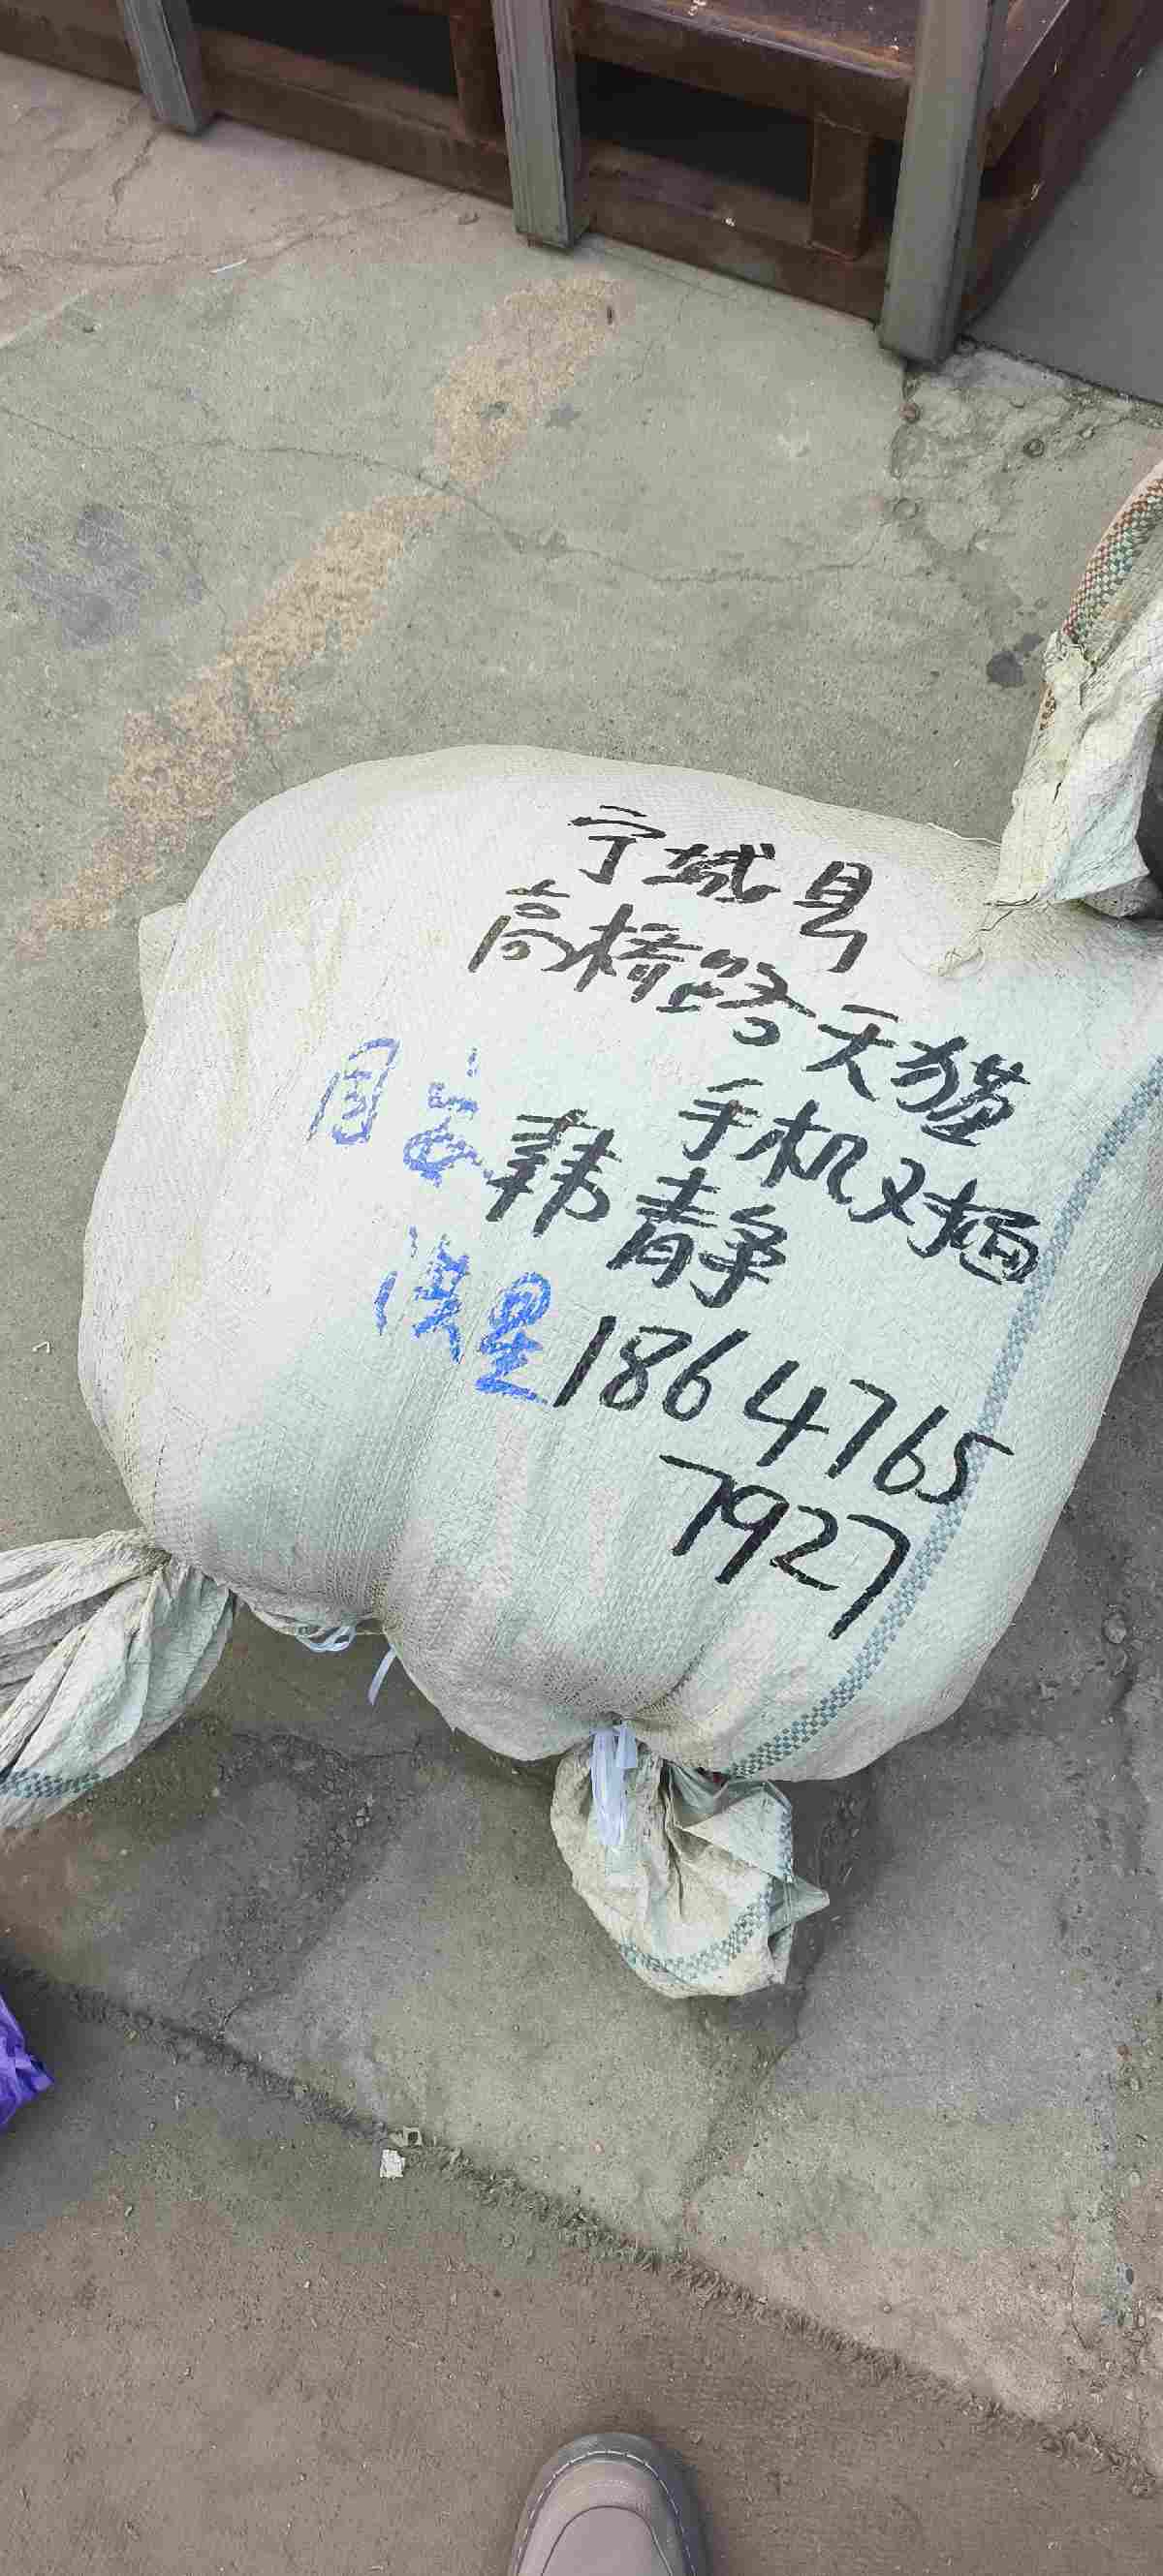 宁城县
高桥路天猫
手机对面
韩青静
1864765
7927
周
洪星